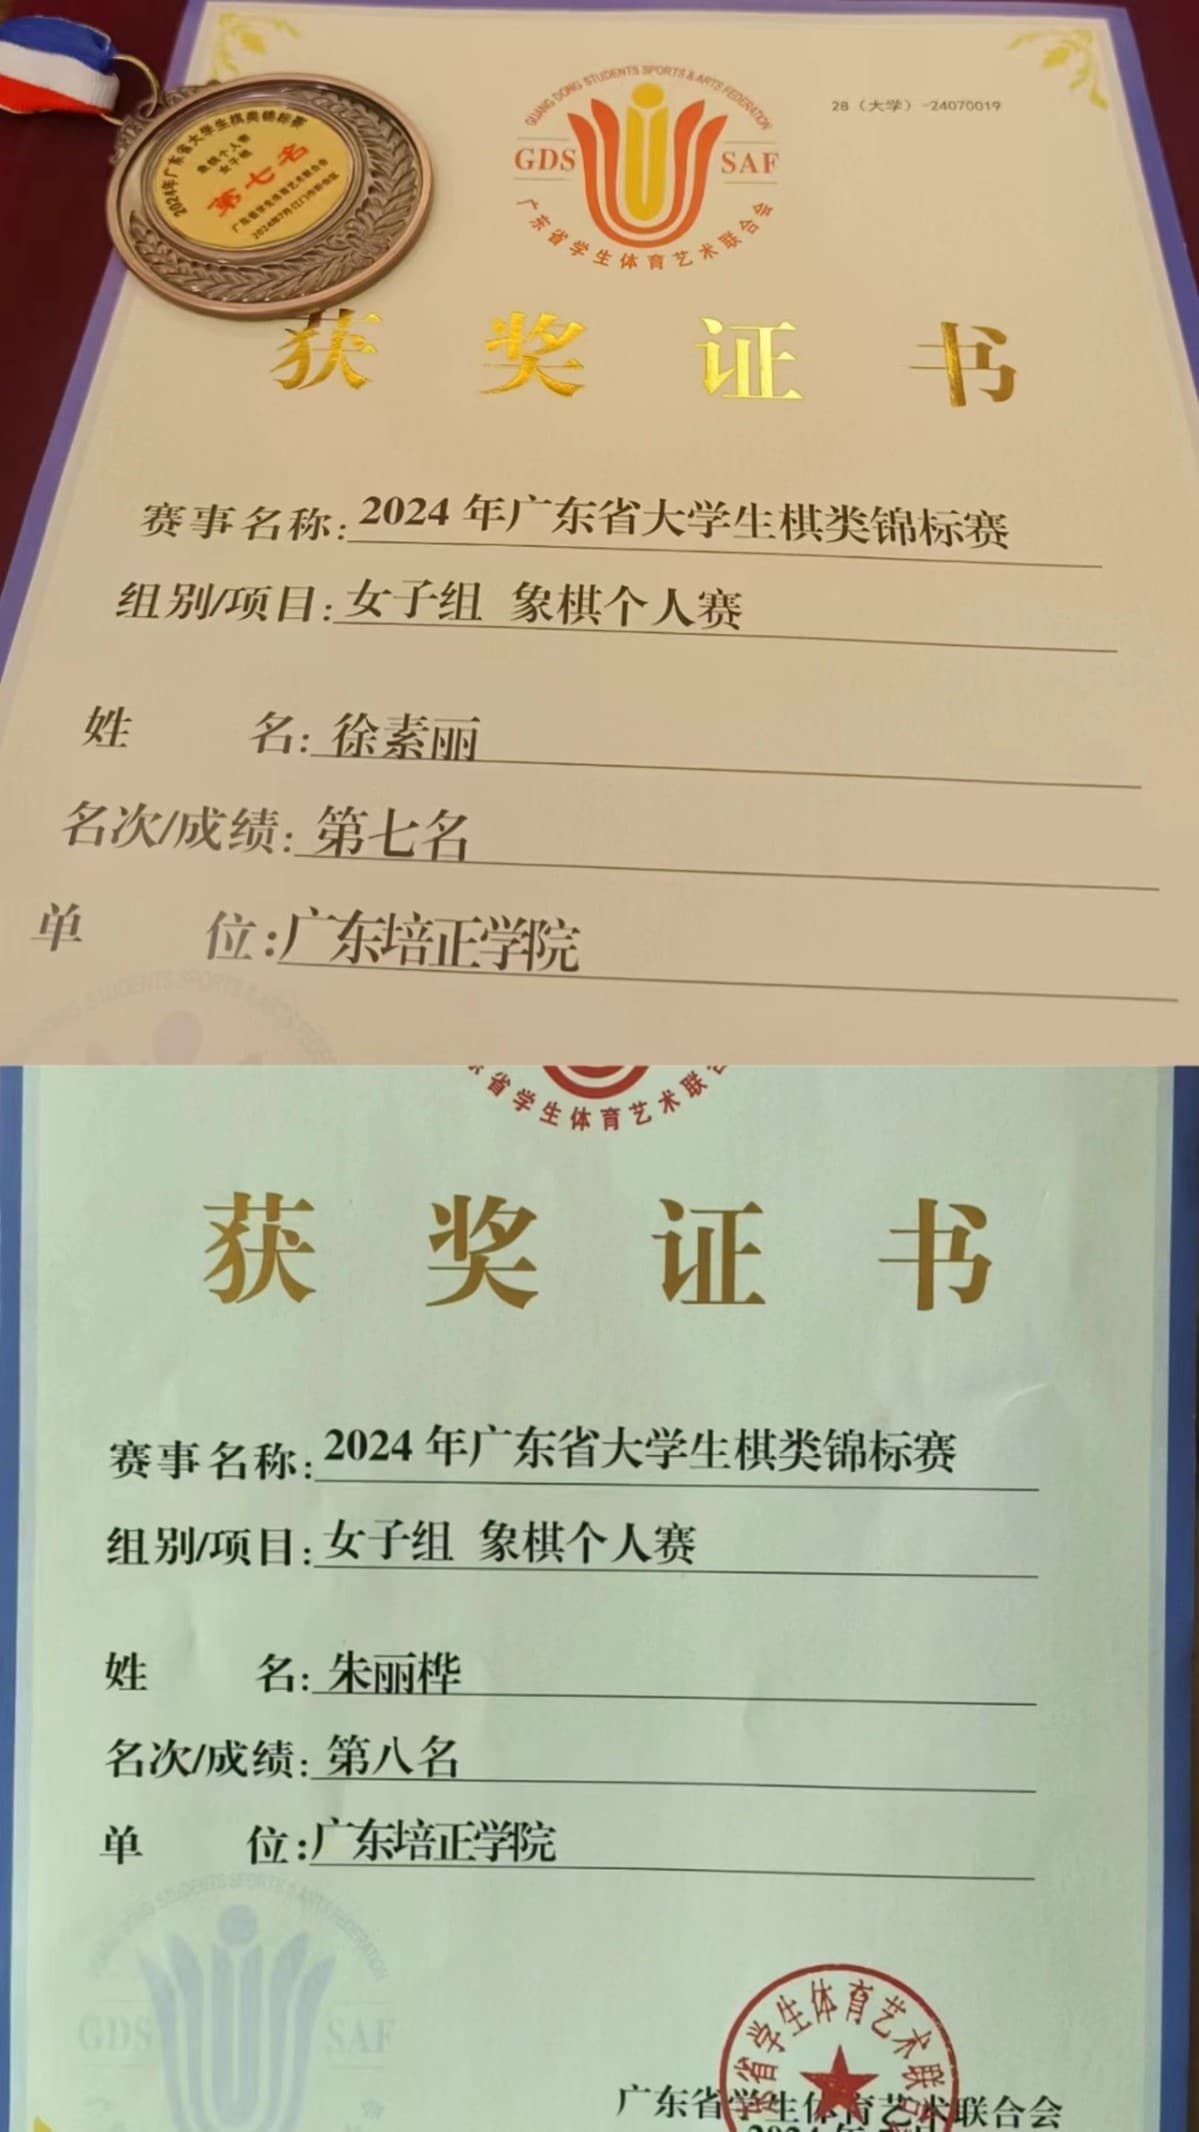 2024年广东省大学生棋类锦标赛
象棋个人赛
女子组
第七名
广东省学生体育艺术联合会
GUANG DONG STUDENTS SPORTS & ARTS FEDERATION
GDS SAF
广东省学生体育艺术联合会
28（大学）-24070019
获奖证书
赛事名称: 2024 年广东省大学生棋类锦标赛
组别/项目: 女子组 象棋个人赛
姓 名: 徐素丽
名次/成绩: 第七名
单 位: 广东培正学院
省学生体育艺术联合
获奖证书
赛事名称: 2024 年广东省大学生棋类锦标赛
组别/项目: 女子组 象棋个人赛
姓 名: 朱丽桦
名次/成绩: 第八名
单 位: 广东培正学院
GDS SAF
省学生体育艺术联
广东省学生体育艺术联合会